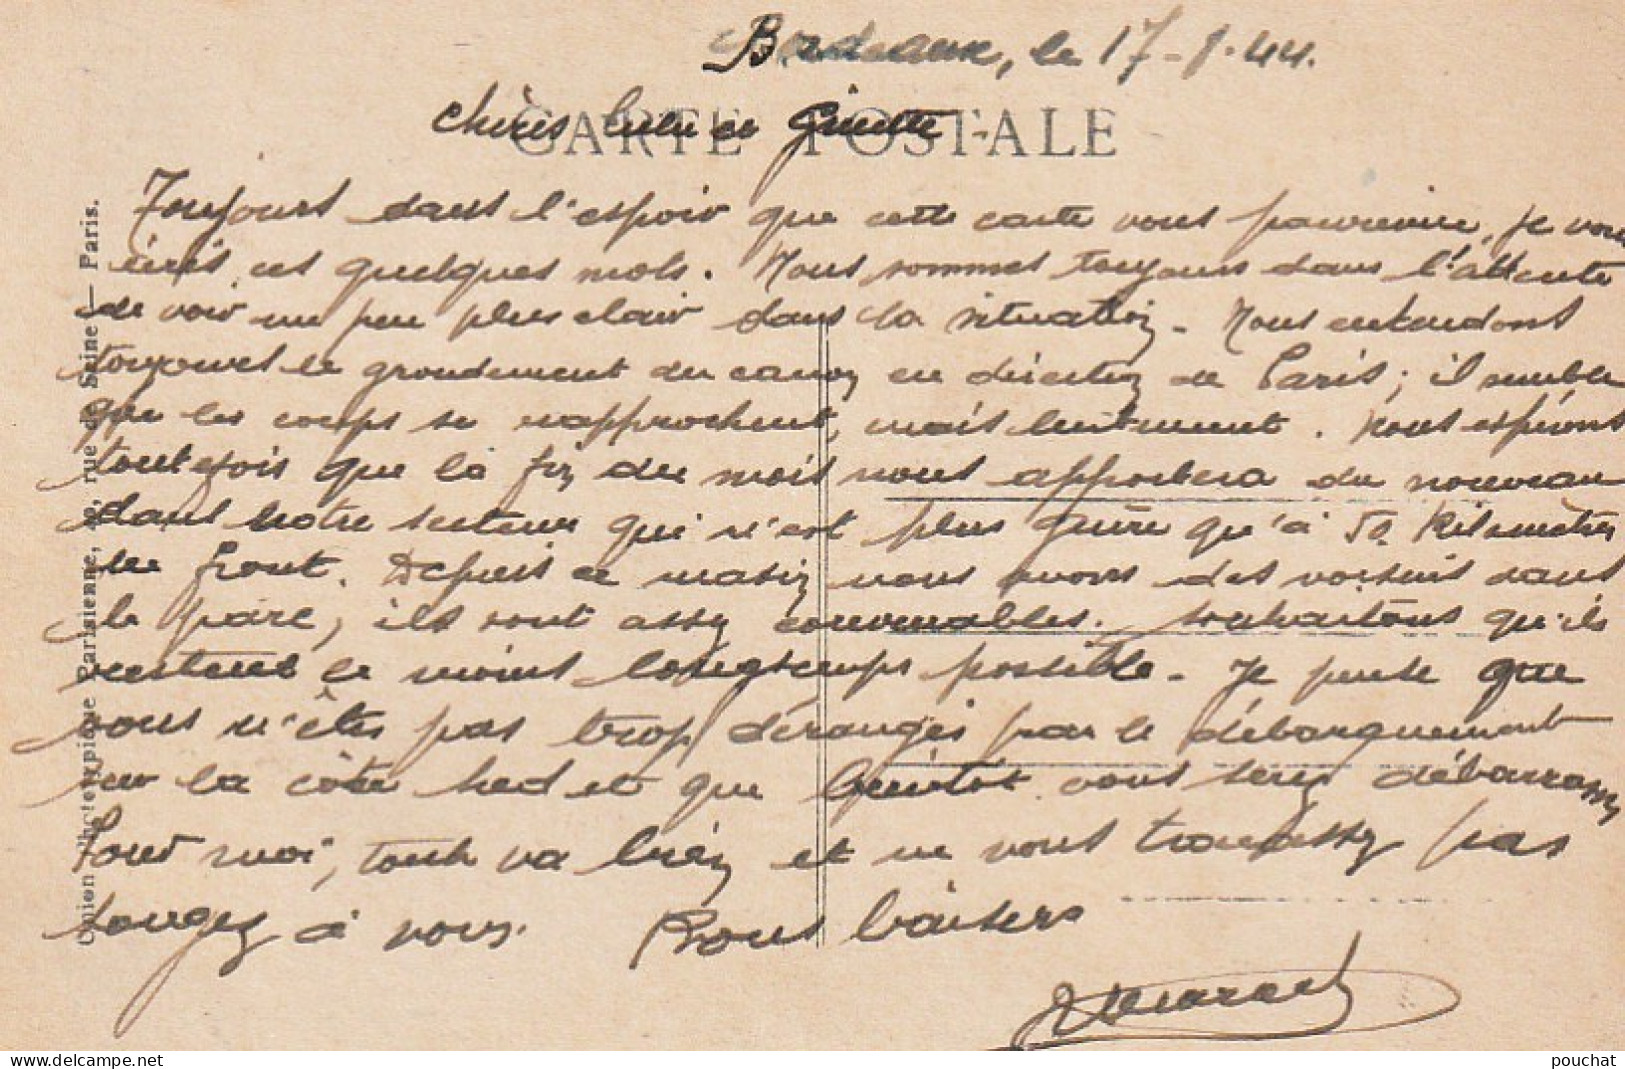 Bordeaux, le 17-8.44.
CARTE POSTALE
Chéris Lulu et Ginette -
Toujours dans l'espoir que cette carte vous parvienne, je vous
écris ces quelques mots. Nous sommes toujours dans l'attente
de voir un peu plus clair dans la situation - Nous entendons
toujours le grondement du canon en direction de Paris; il semble
que les coups se rapprochent, mais lentement. Nous espérons
toutefois que la fin du mois nous apportera du nouveau
dans notre secteur qui n'est plus guère qu'à 50 Kilomètres
du front. Depuis ce matin nous avons des voisins dans
le parc, ils sont assez convenables. souhaitons qu'ils
restent le moins longtemps possible - Je pense que
vous n'êtes pas trop dérangés par le débarquement
sur la côte sud et que bientôt vous serez débarrassés
Pour moi, tout va bien et ne vous tracassez pas
songez à vous. Bons baisers
Union Phototypique Parisienne, rue de Seine — Paris.
pouchat